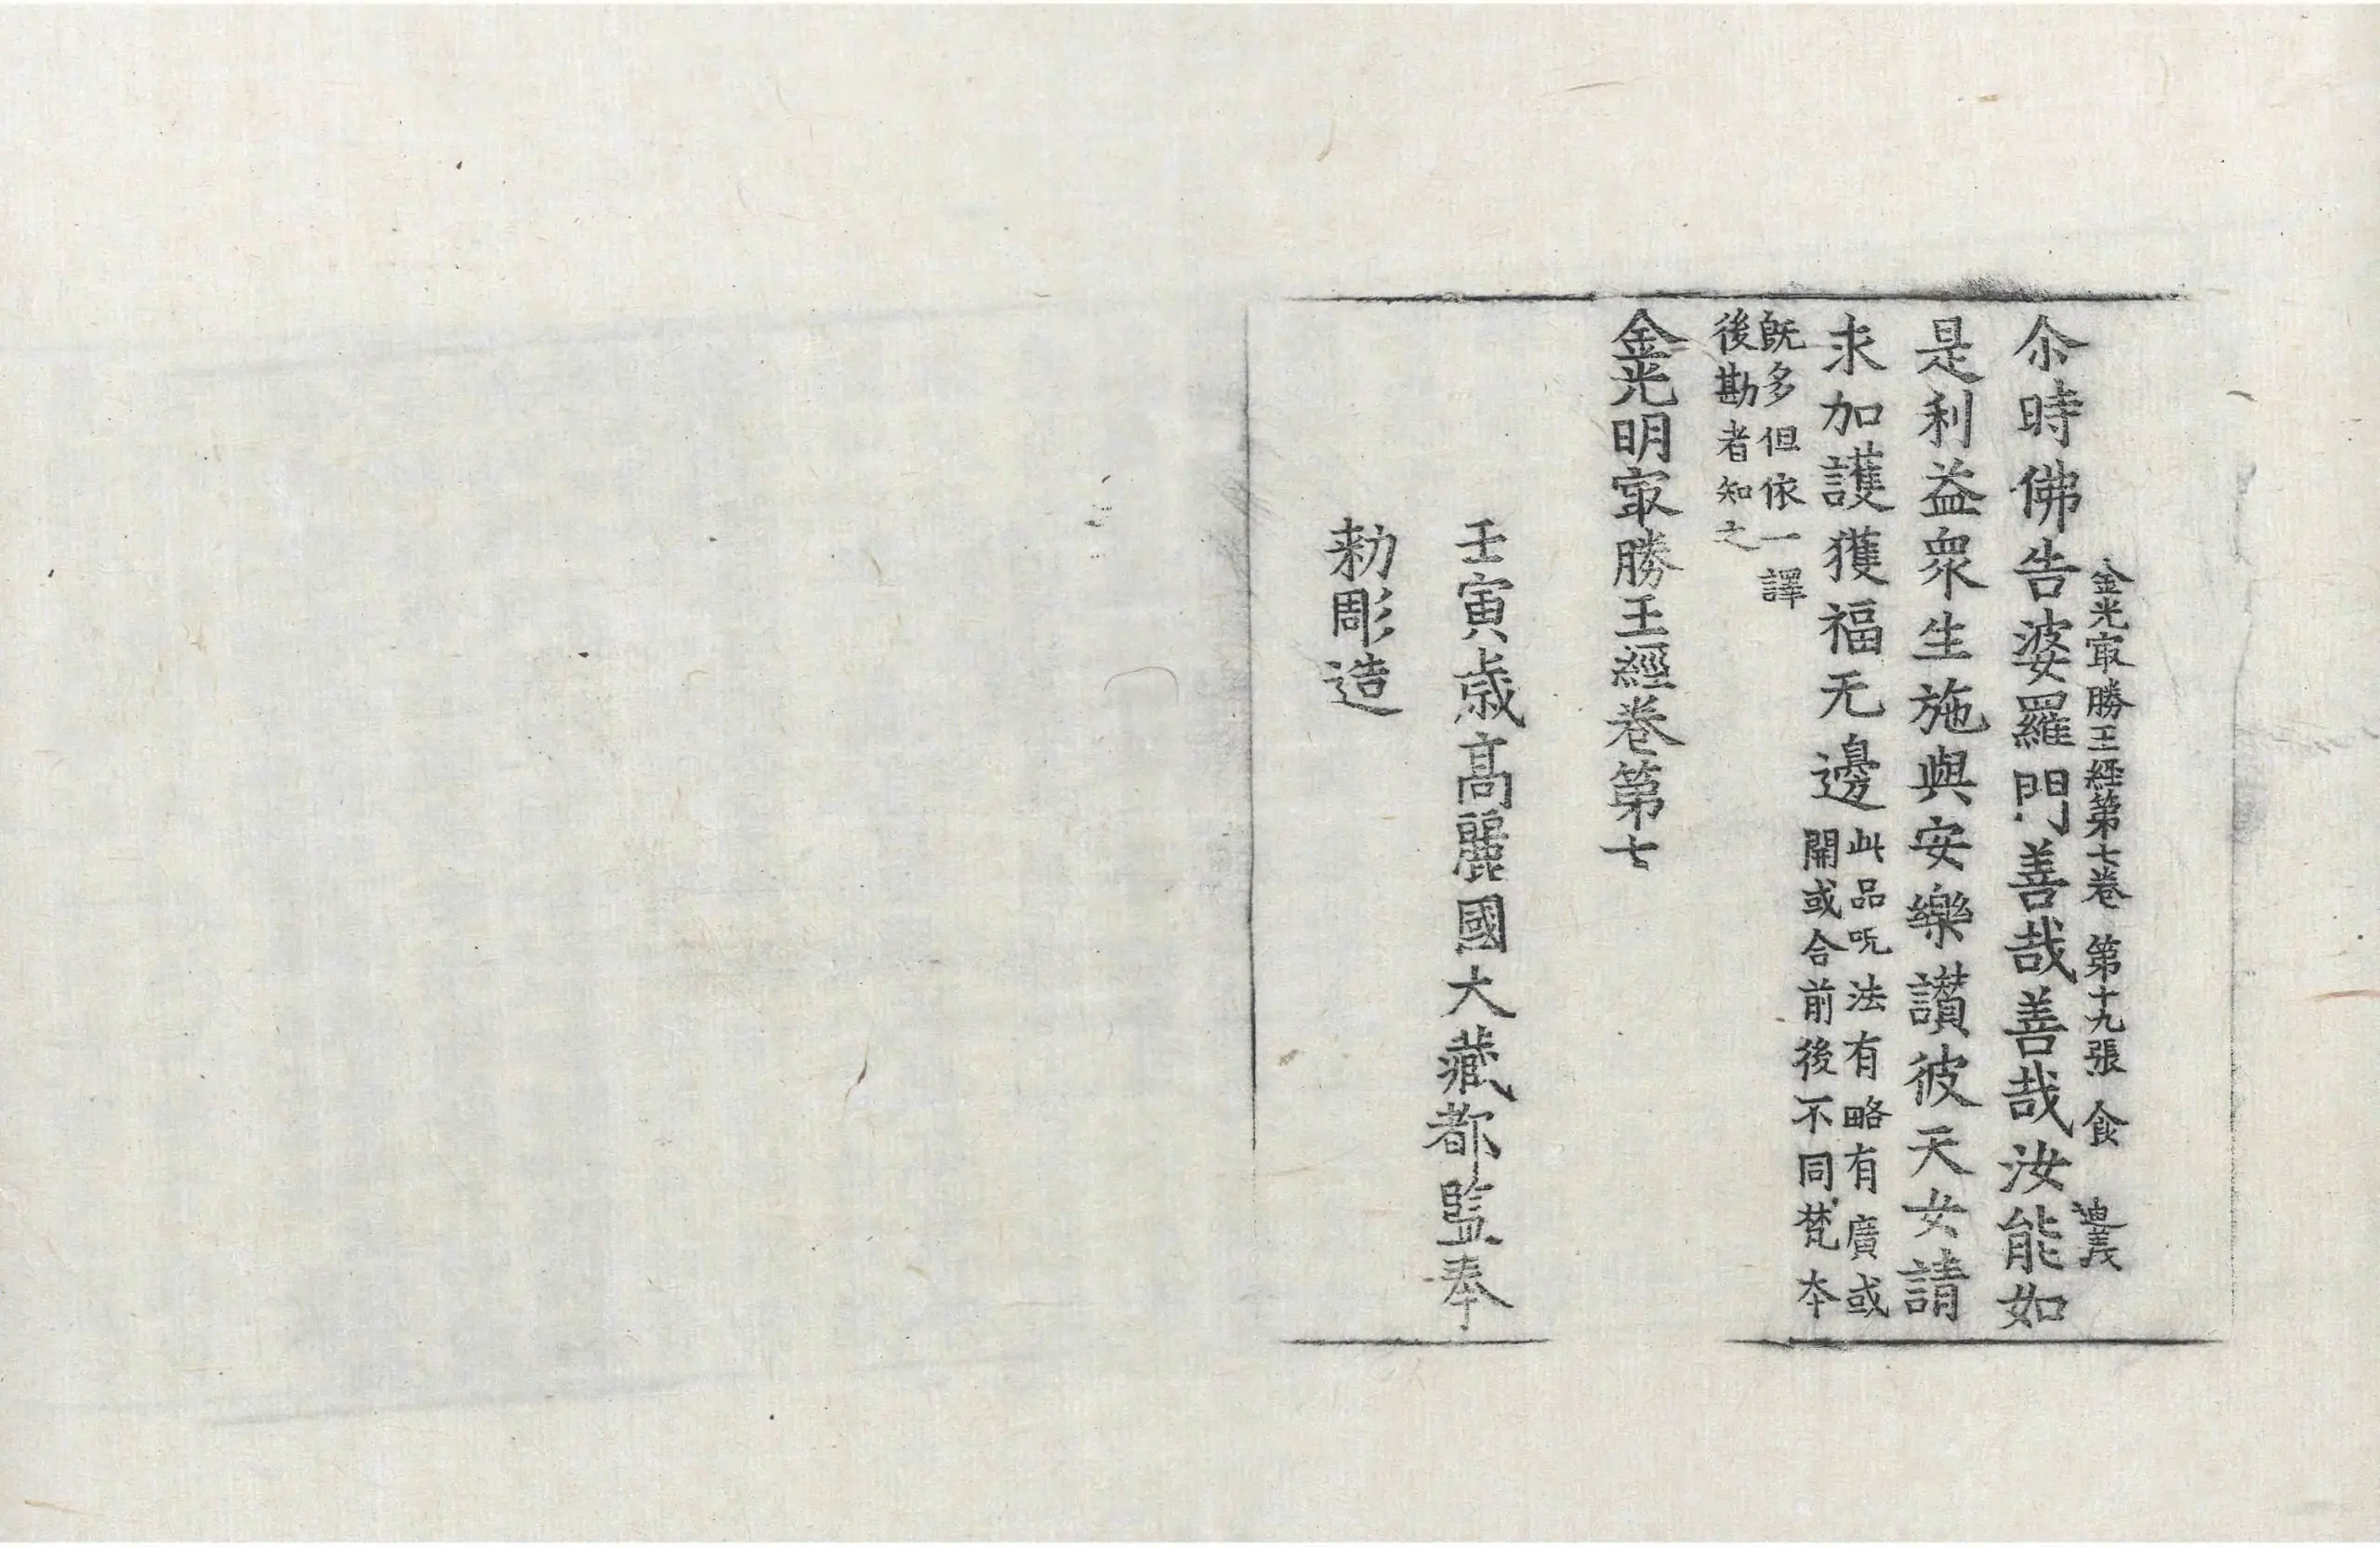 金光㝡勝王経第七卷 第十九張 食
尒時佛告婆羅門善哉善哉汝能如
是利益衆生施與安樂讃彼天女請
求加護獲福无邊此品呪法有略有廣或
開或合前後不同梵夲
旣多但依一譯
後勘者知之
金光明㝡勝王經卷第七
壬寅歲高麗國大藏都監奉
勑彫造